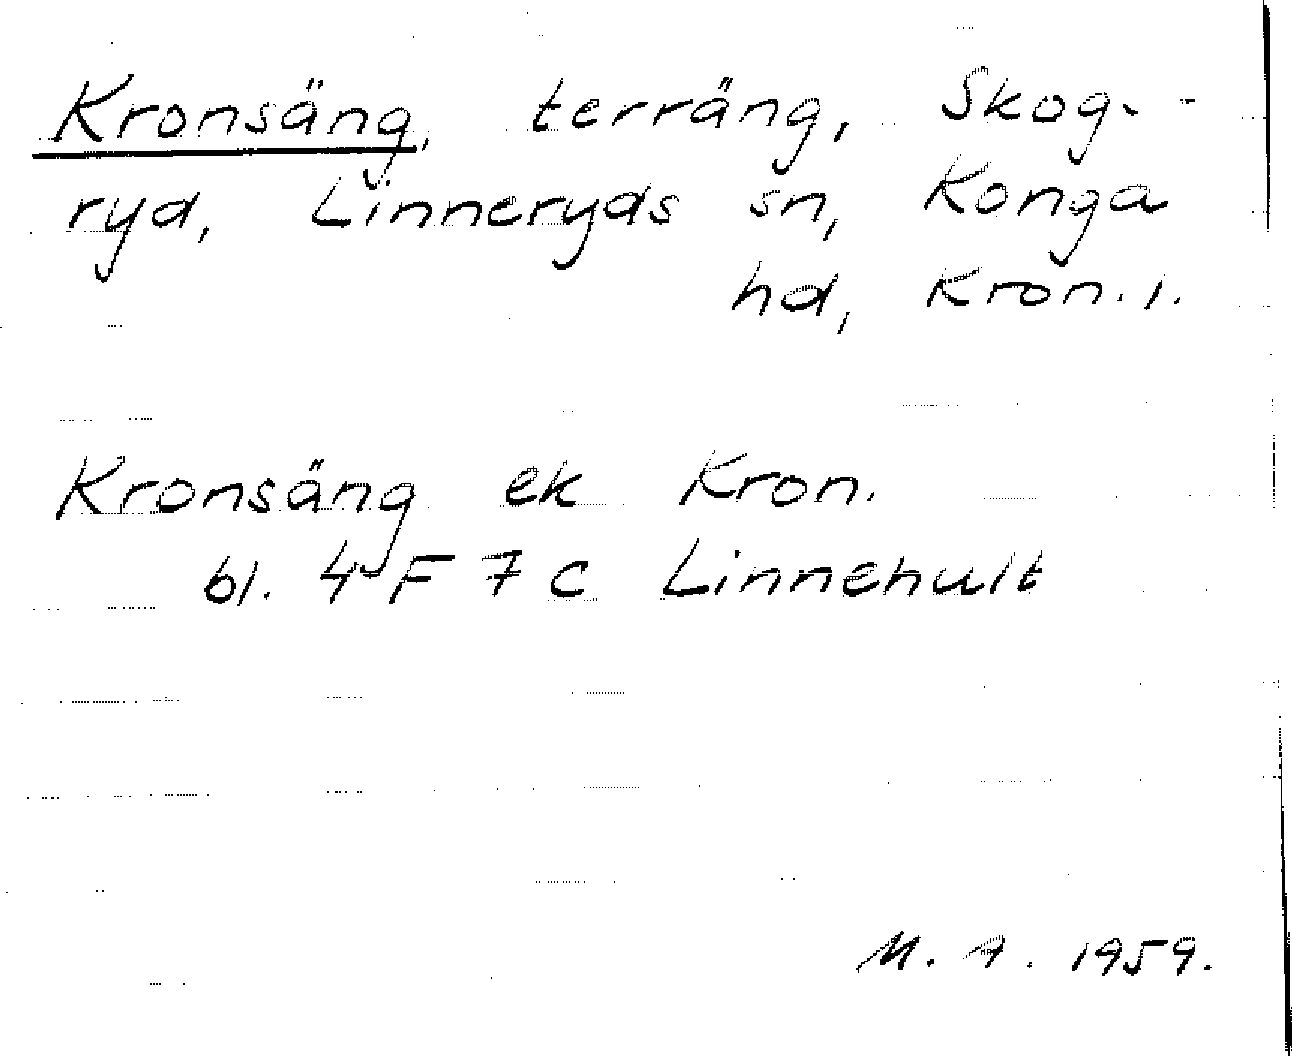 Kronsäng, terräng, Skog-
ryd, Linneryds sn, Konga
hd, Kron. l.
Kronsäng ek Kron.
bl. 4 F 7 c Linnehult
M. A. 1959.